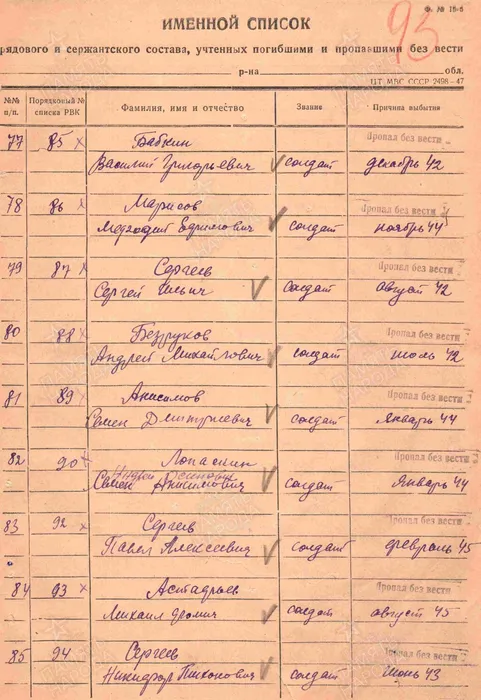 Ф. № 16-б
93
ИМЕННОЙ СПИСОК
рядового и сержантского состава, учтенных погибшими и пропавшими без вести
р-на обл.
ЦТ МВС СССР 2498-47
№№ п/п. Порядковый № списка РВК Фамилия, имя и отчество Звание Причина выбытия
77 85 Бабкин Пропал без вести
Василий Григорьевич солдат декабрь 42
78 86 Марисов Пропал без вести
Ефимович солдат ноябрь 44
79 87 Сергеев Пропал без вести
Сергей Ильич солдат август 42
80 88 Безруков Пропал без вести
Андрей Михайлович солдат июль 42
81 89 Анисимов Пропал без вести
Семен Дмитриевич солдат январь 44
82 90 Лопаскин Пропал без вести
Андрей Осипович
Семен Анисимович солдат январь 44
83 92 Сергеев Пропал без вести
Павел Алексеевич солдат февраль 45
84 93 Пропал без вести
Михаил солдат август 45
85 94 Сергеев Пропал без вести
Никифор Тихонович солдат июнь 43